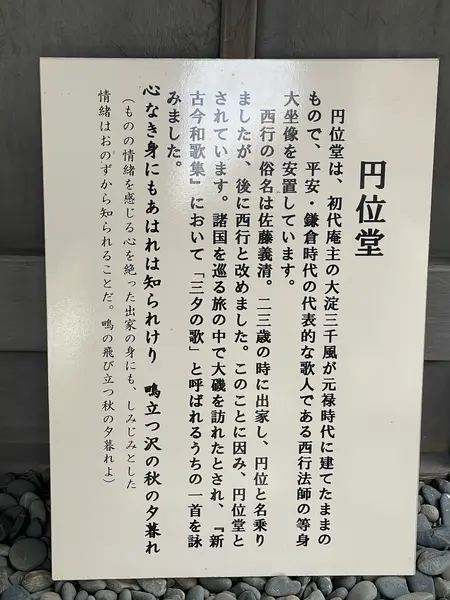 円位堂
円位堂は、初代庵主の大淀三千風が元禄時代に建てたままの
もので、平安・鎌倉時代の代表的な歌人である西行法師の等身
大坐像を安置しています。
西行の俗名は佐藤義清。二三歳の時に出家し、円位と名乗り
ましたが、後に西行と改めました。このことに因み、円位堂と
されています。諸国を巡る旅の中で大磯を訪れたとされ、『新
古今和歌集』において「三夕の歌」と呼ばれるうちの一首を詠
みました。
心なき身にもあはれは知られけり　鴫立つ沢の秋の夕暮れ
（ものの情緒を感じる心を絶った出家の身にも、しみじみとした
情緒はおのずから知られることだ。鴫の飛び立つ秋の夕暮れよ）